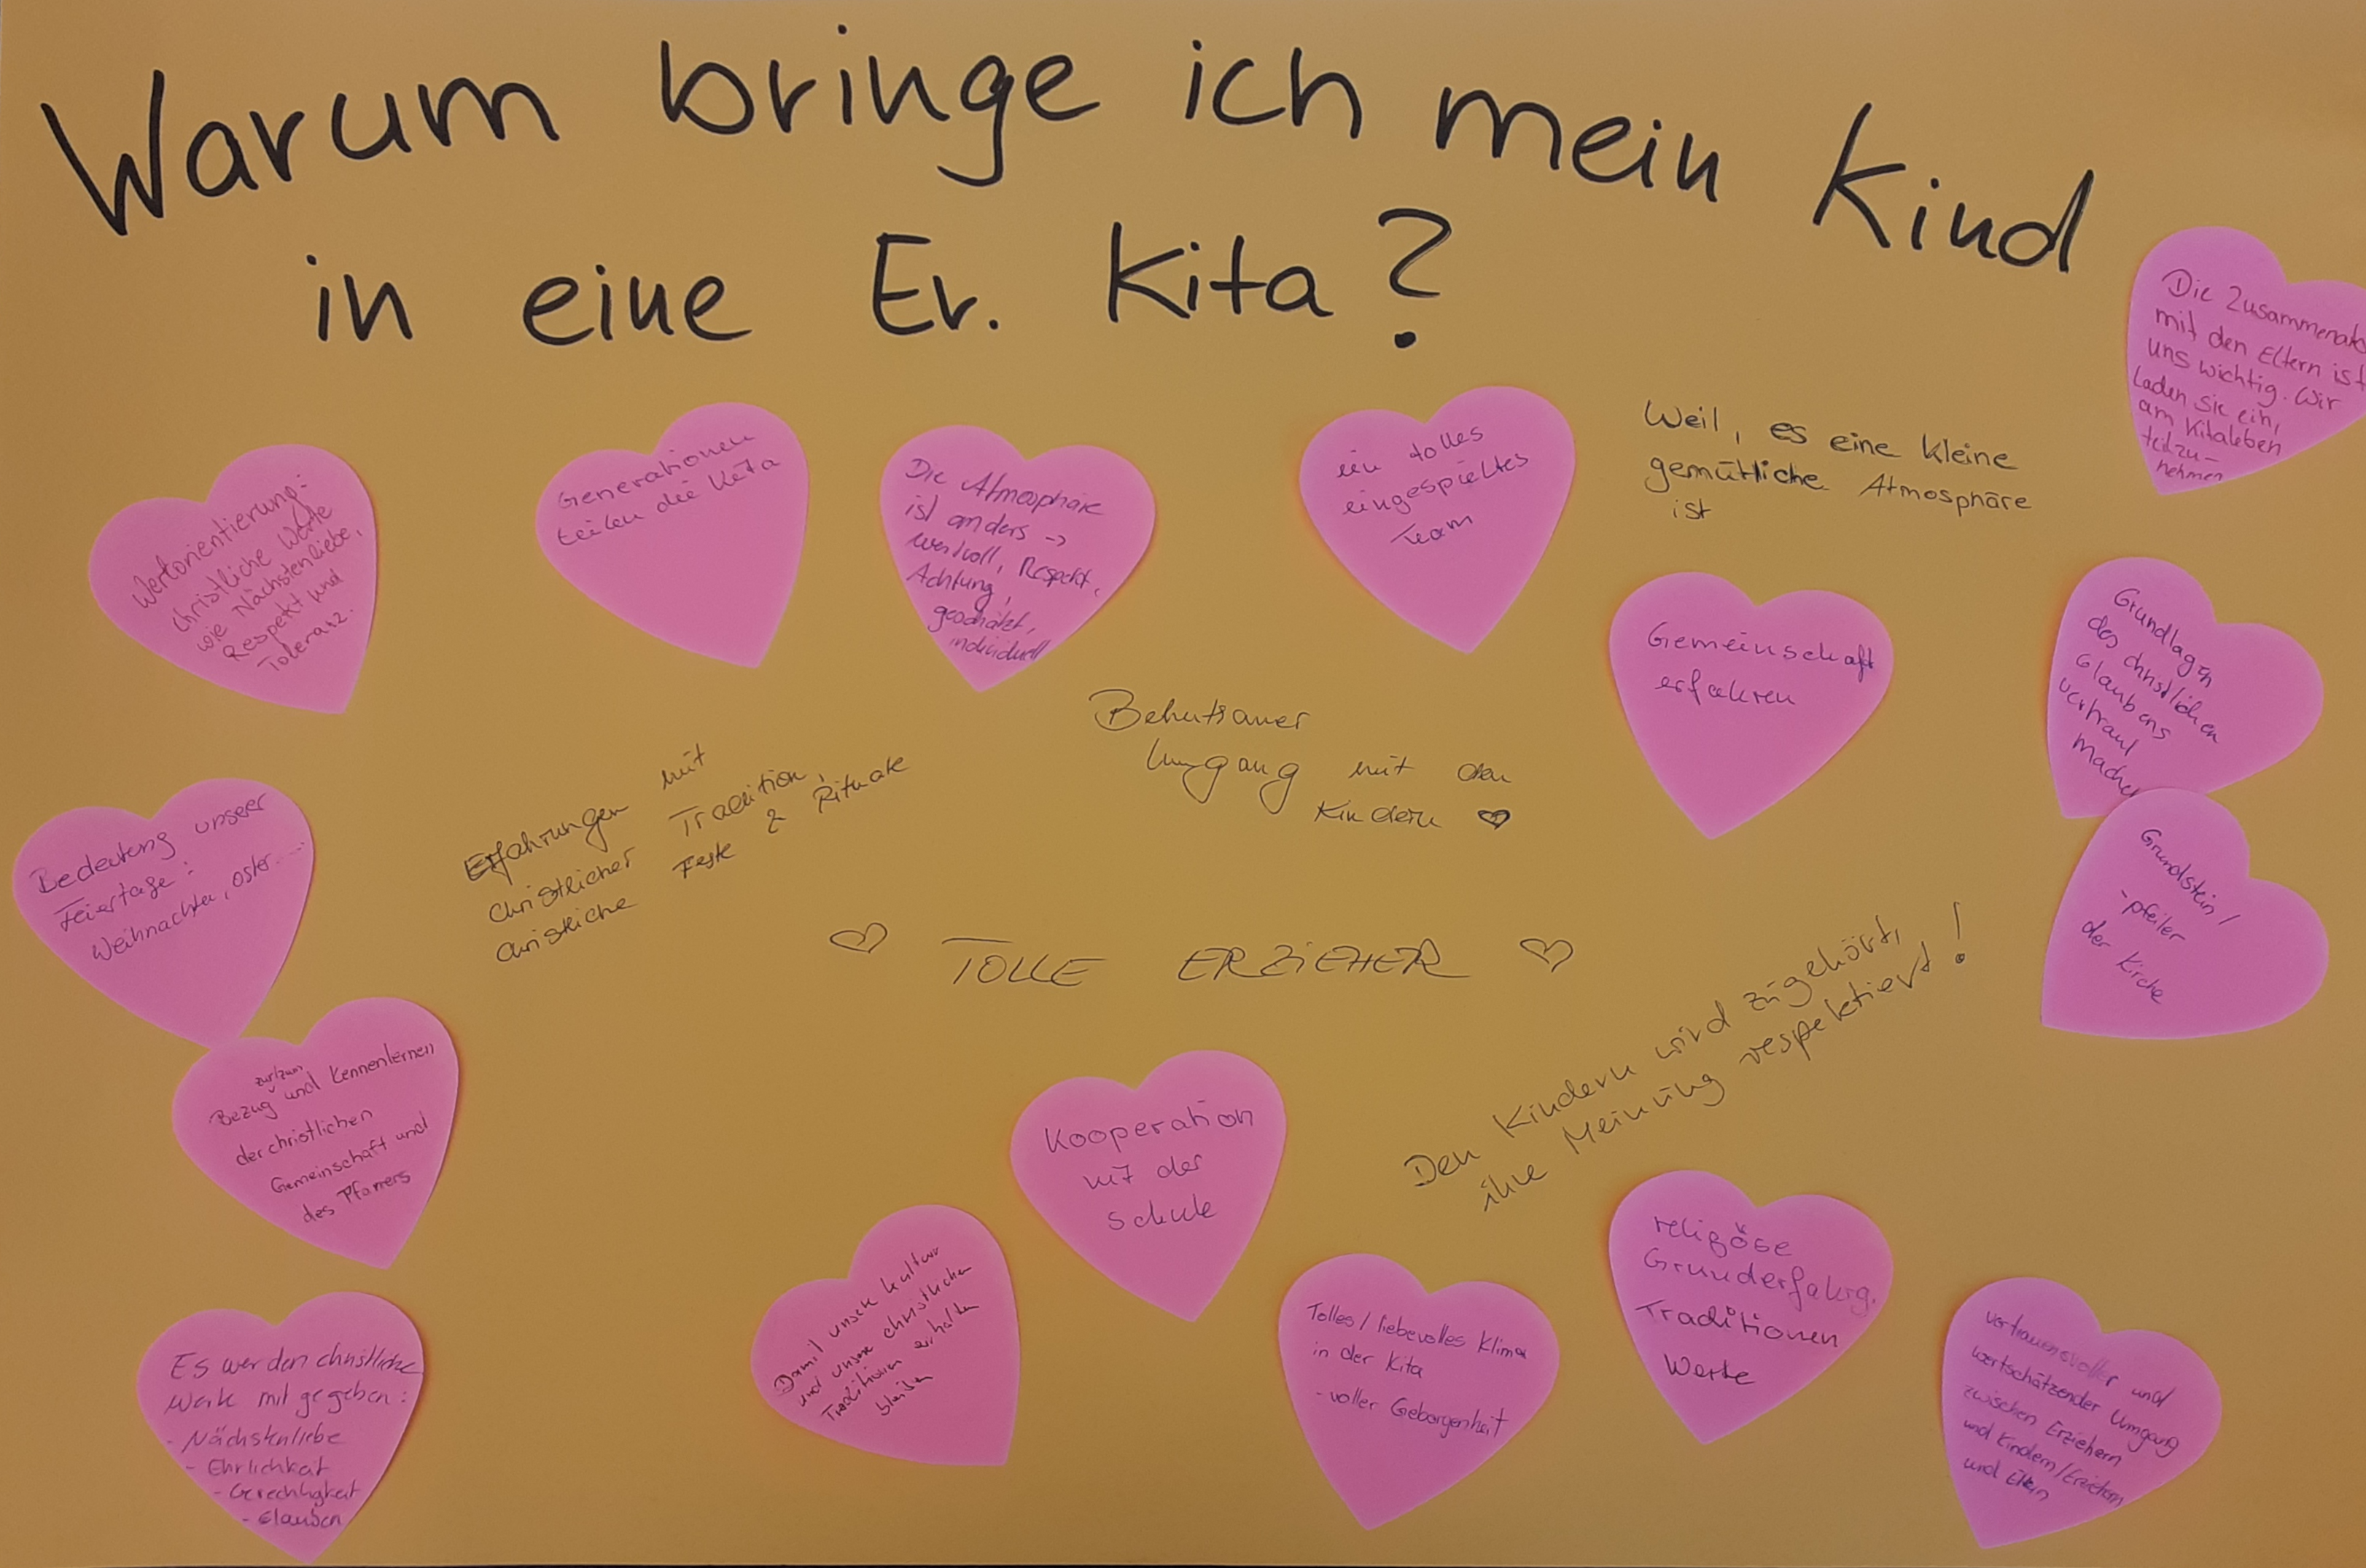 Warum bringe ich mein Kind
in eine Ev. Kita?
Die Zusammenarb
mit den Eltern ist
uns wichtig. Wir
laden sie ein,
am Kitaleben
teilzu-
nehmen
Wertorientierung:
christliche Werte
wie Nächstenliebe,
Respekt und
Toleranz.
Generationen
teilen die Kita
Die Atmosphäre
ist anders ->
wertvoll, Respekt,
Achtung,
geschätzt,
individuell
ein tolles
eingespieltes
Team
Weil, es eine kleine
gemütliche Atmosphäre
ist
Gemeinschaft
erfahren
Grundlagen
des christlichen
Glaubens
vertraut
machen
Behutsamer
Umgang mit den
Kindern ♡
Erfahrungen mit
christlicher Tradition,
christliche Feste & Rituale
Bedeutung unserer
Feiertage:
Weihnachten, Oster....
Grundstein/
-pfeiler
der Kirche
♡ TOLLE ERZIEHER ♡
Den Kindern wird zugehört,
ihre Meinung respektiert!
zur/zum
Bezug und Kennenlernen
der christlichen
Gemeinschaft und
des Pfarrers
Kooperation
mit der
Schule
Damit unsere Kultur
und unsere christlichen
Traditionen erhalten
bleiben
Tolles/liebevolles Klima
in der Kita
- voller Geborgenheit
religöse
Grunderfahrg.
Traditionen
Werte
vertrauensvoller und
wertschätzender Umgang
zwischen Erziehern
und Kindern/Erziehern
und Eltern
Es werden christliche
Werte mit gegeben:
- Nächstenliebe
- Ehrlichkeit
- Gerechtigkeit
- Glauben